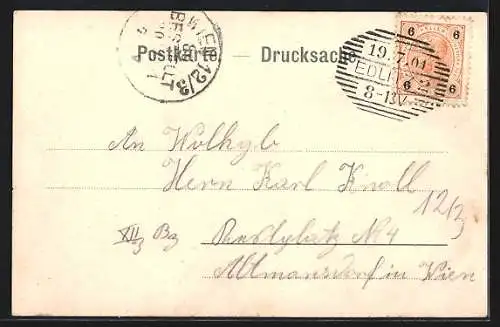 Postkarte — Drucksache
WIEN 12/3
BESTELLT
6 6
6 6
19.7.01
EDLI
8-
An Wolhyb
Herrn Karl Knoll
12/3
XII/3 Bz
Platz Nr 4
Altmansdorf in Wien